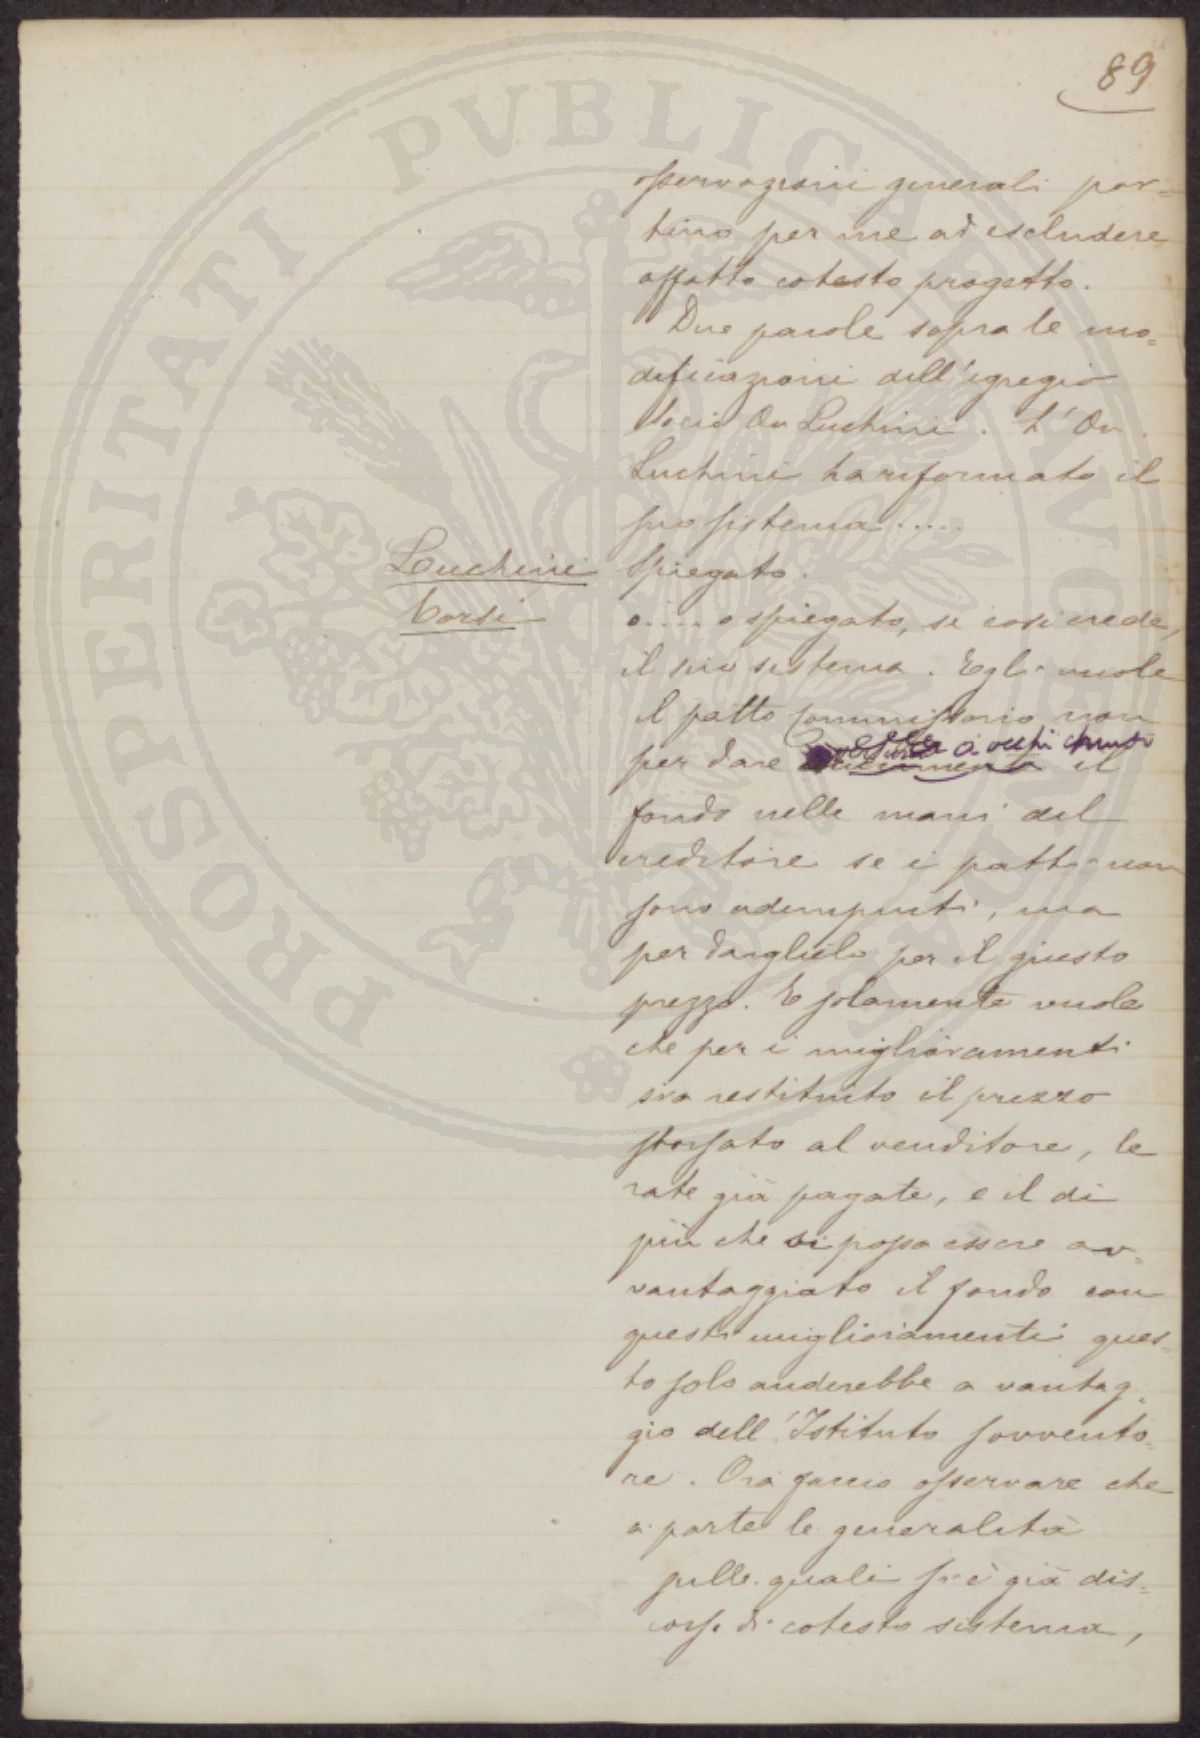 89
osservazioni generali por=
tino per me ad escludere
affatto cotesto progetto.
Due parole sopra le mo=
dificazioni dell'egregio
socio On Luchini. L'On.
Luchini ha riformato il
suo sistema.....
Luchini Spiegato.
Corsi o..... o spiegato, se così crede,
il suo sistema. Egli vuole
il patto commissorio non
a occhi chiusi
per dare il
fondo nelle mani del
creditore se i patti non
sono adempiuti, ma
per darglielo per il giusto
prezzo. E solamente vuole
che per i miglioramenti
sia restituito il prezzo
sborsato al venditore, le
rate già pagate, e il di
più che si possa essere av=
vantaggiato il fondo con
questi miglioramenti ques=
to solo anderebbe a vantag=
gio dell'Istituto sovvento=
re. Ora faccio osservare che
a parte le generalità
sulle quali si è già dis=
corso di cotesto sistema,
PROSPERITATI PVBLICAE AVGENDAE